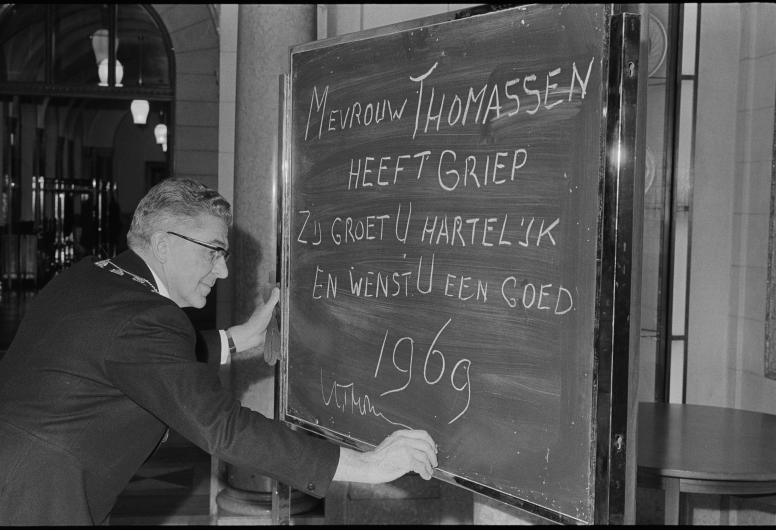 MEVROUW THOMASSEN
HEEFT GRIEP
ZIJ GROET U HARTELIJK
EN WENST U EEN GOED
1969